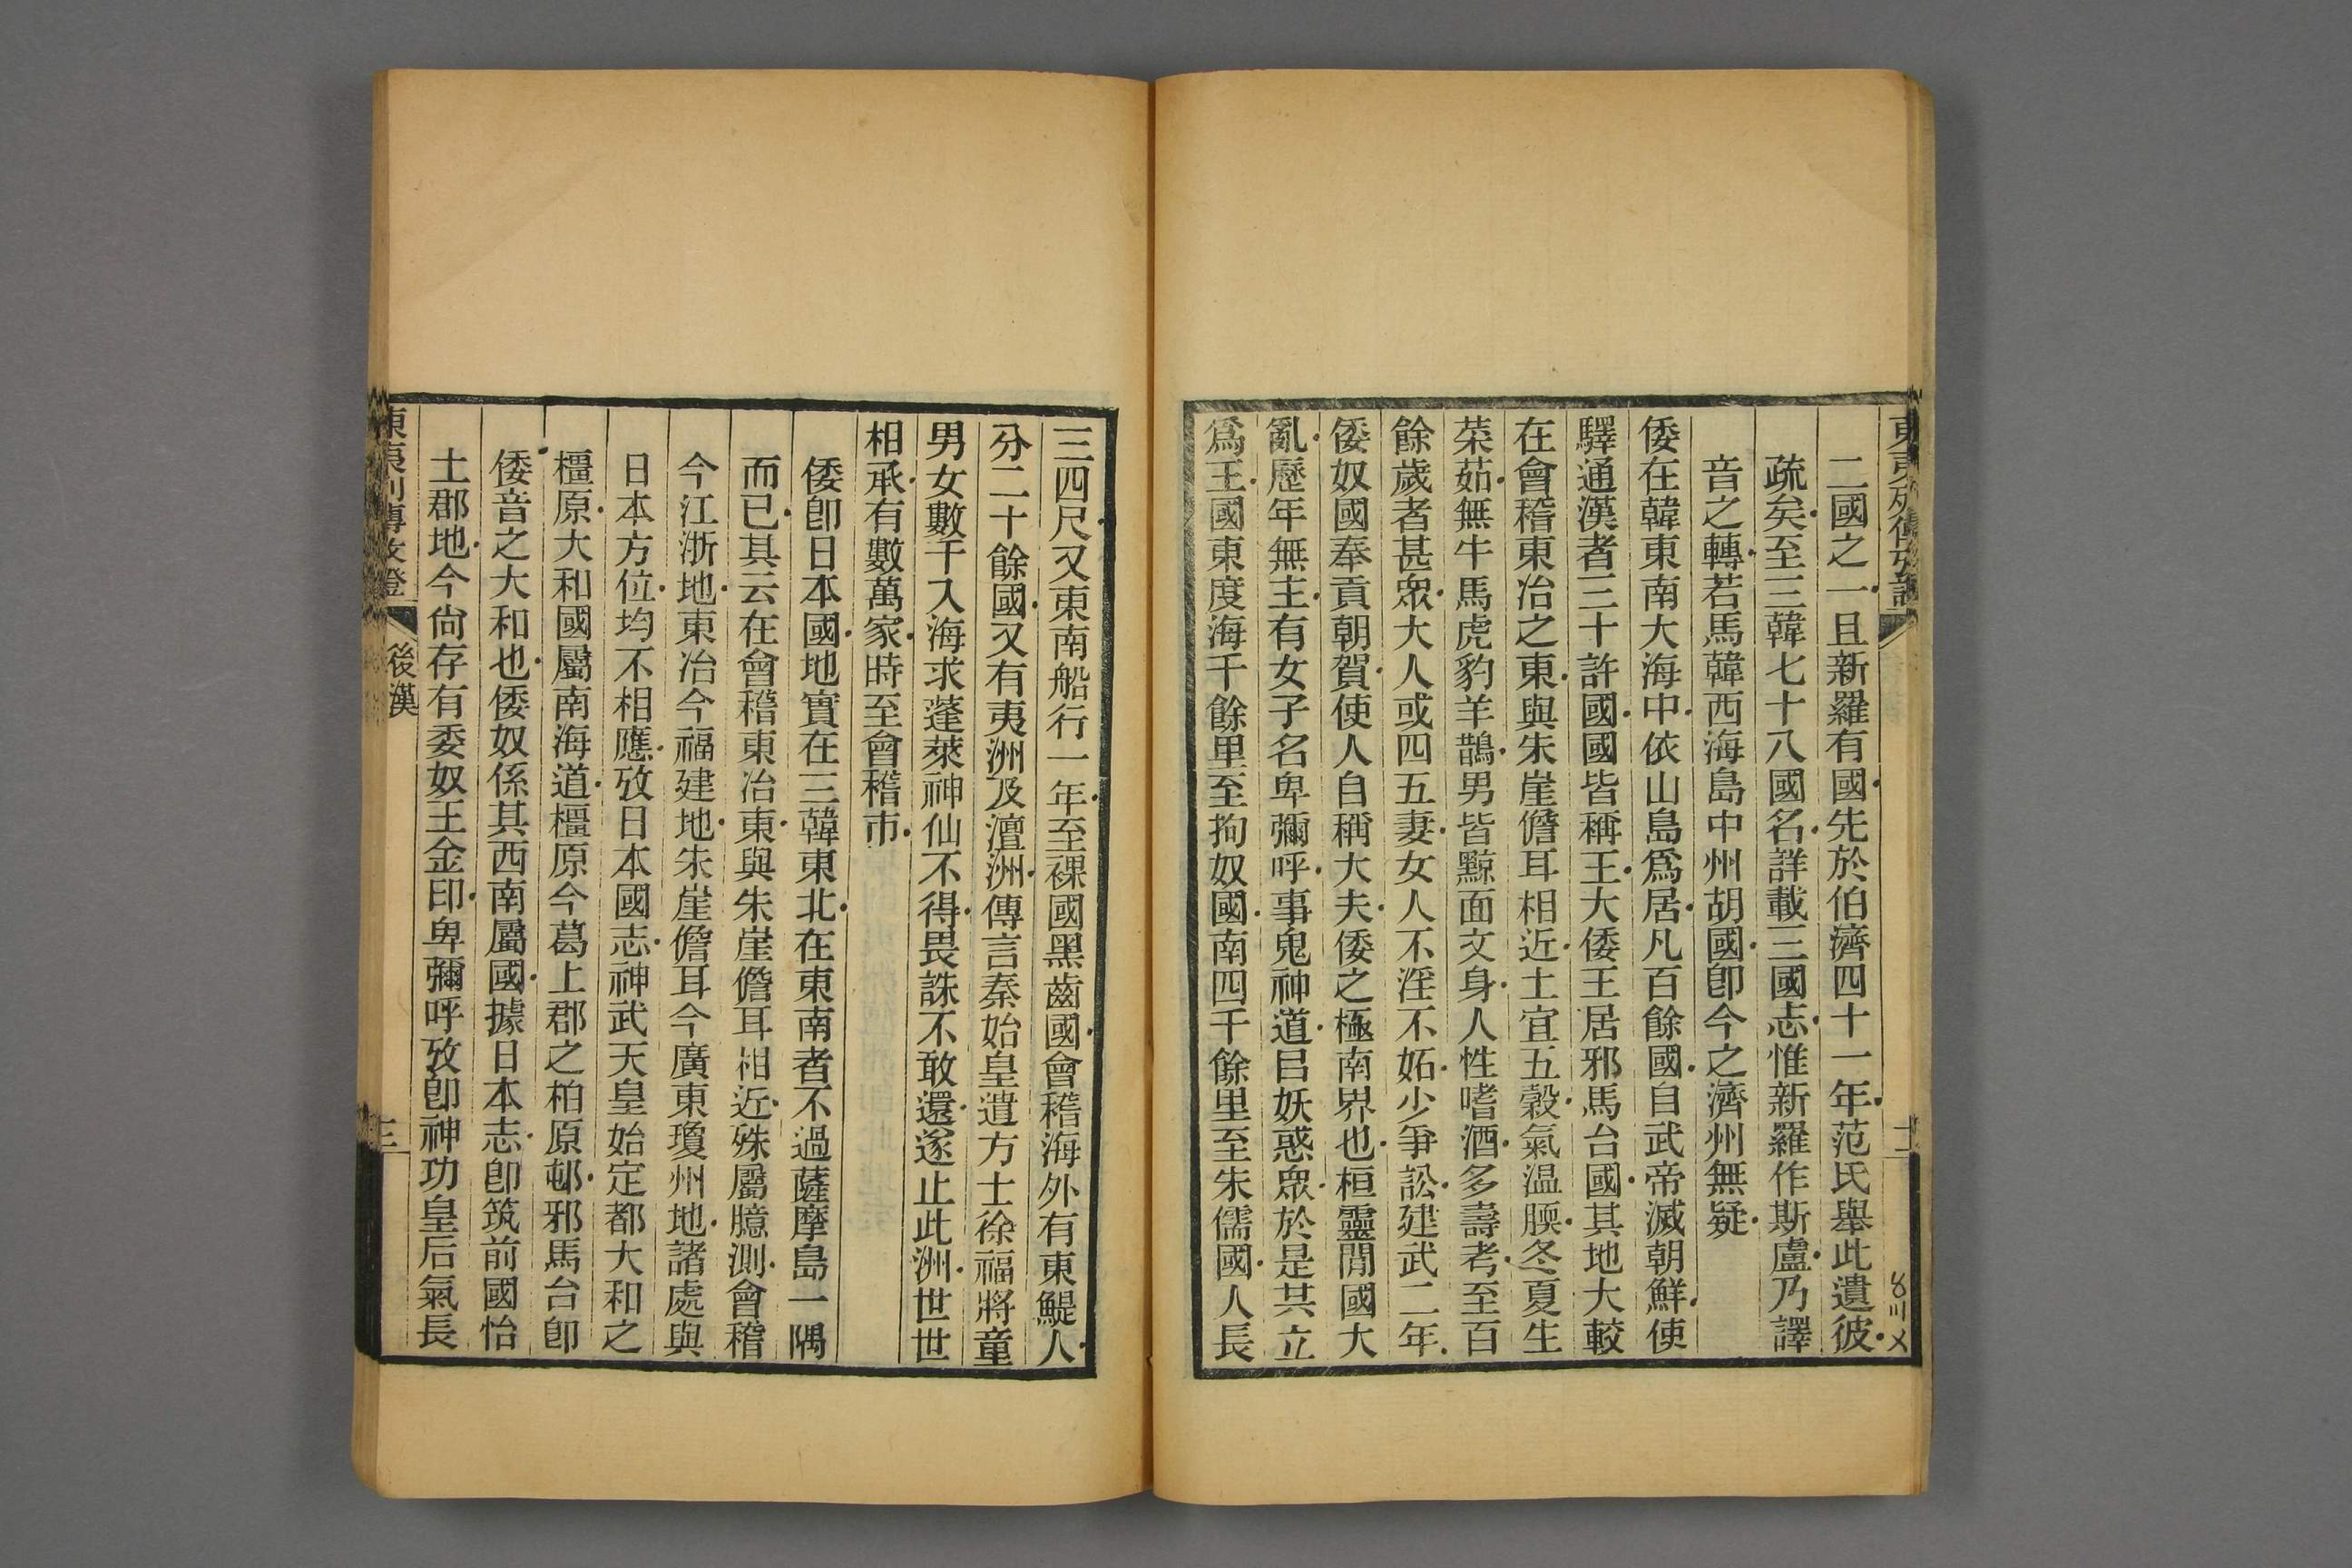 二國之一且新羅有國先於伯濟四十一年范氏舉此遺彼
疏矣至三韓七十八國名詳載三國志惟新羅作斯盧乃譯
音之轉若馬韓西海島中州胡國卽今之濟州無疑
倭在韓東南大海中依山島爲居凡百餘國自武帝滅朝鮮使
驛通漢者三十許國國皆稱王大倭王居邪馬台國其地大較
在會稽東冶之東與朱崖儋耳相近土宜五穀氣温腝冬夏生
菜茹無牛馬虎豹羊鵲男皆黥面文身人性嗜酒多壽考至百
餘歲者甚眾大人或四五妻女人不淫不妬少爭訟建武二年
倭奴國奉貢朝賀使人自稱大夫倭之極南界也桓靈閒國大
亂歷年無主有女子名卑彌呼事鬼神道㠯妖惑眾於是共立
爲王國東度海千餘里至拘奴國南四千餘里至朱儒國人長
三四尺又東南船行一年至裸國黑齒國會稽海外有東鯷人
分二十餘國又有夷洲及澶洲傳言秦始皇遣方士徐福將童
男女數千入海求蓬萊神仙不得畏誅不敢還遂止此洲世世
相承有數萬家時至會稽市
倭卽日本國地實在三韓東北在東南者不過薩摩島一隅
而已其云在會稽東冶東與朱崖儋耳相近殊屬臆測會稽
今江浙地東冶今福建地朱崖儋耳今廣東瓊州地諸處與
日本方位均不相應攷日本國志神武天皇始定都大和之
橿原大和國屬南海道橿原今葛上郡之柏原邨邪馬台卽
倭音之大和也倭奴係其西南屬國據日本志卽筑前國怡
土郡地今尙存有委奴王金印卑彌呼攷卽神功皇后氣長
東夷列傳攷證
後漢